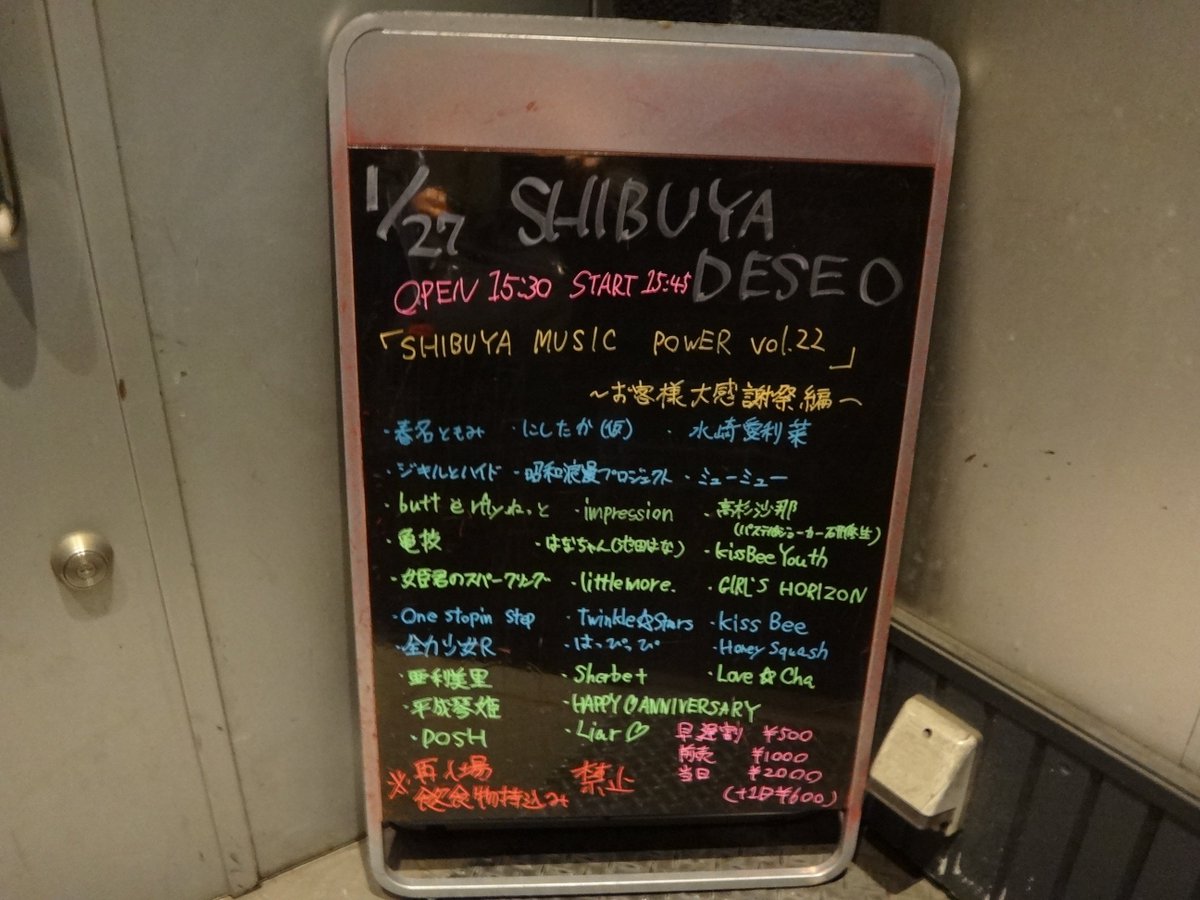 1/27 SHIBUYA
DESEO
OPEN 15:30 START 15:45
「SHIBUYA MUSIC POWER vol.22」
〜お客様大感謝祭編〜
・春名ともみ ・にしたか(仮) ・水崎愛利菜
・ジキルとハイド ・昭和浪漫プロジェクト ・ミューミュー
・butterflyねっと ・impression ・高杉沙那
・亀梭 ・はなちゃん(沈田はな) ・kissBeeYouth
・姫君のスパークリング ・littlemore. ・GIRL'S HORIZON
・One stopin step ・Twinkle☆Stars ・Kiss Bee
・全力少女R ・はっぴっぴ ・Honey Squash
・亜利美里 ・Sherbet ・Love☆Cha
・平成琴姫 ・HAPPY♡ANNIVERSARY
・POSH ・Liar♡
早遅割 ¥500
前売 ¥1000
当日 ¥2000
(+1D¥600)
※再入場 禁止
飲食物持込み